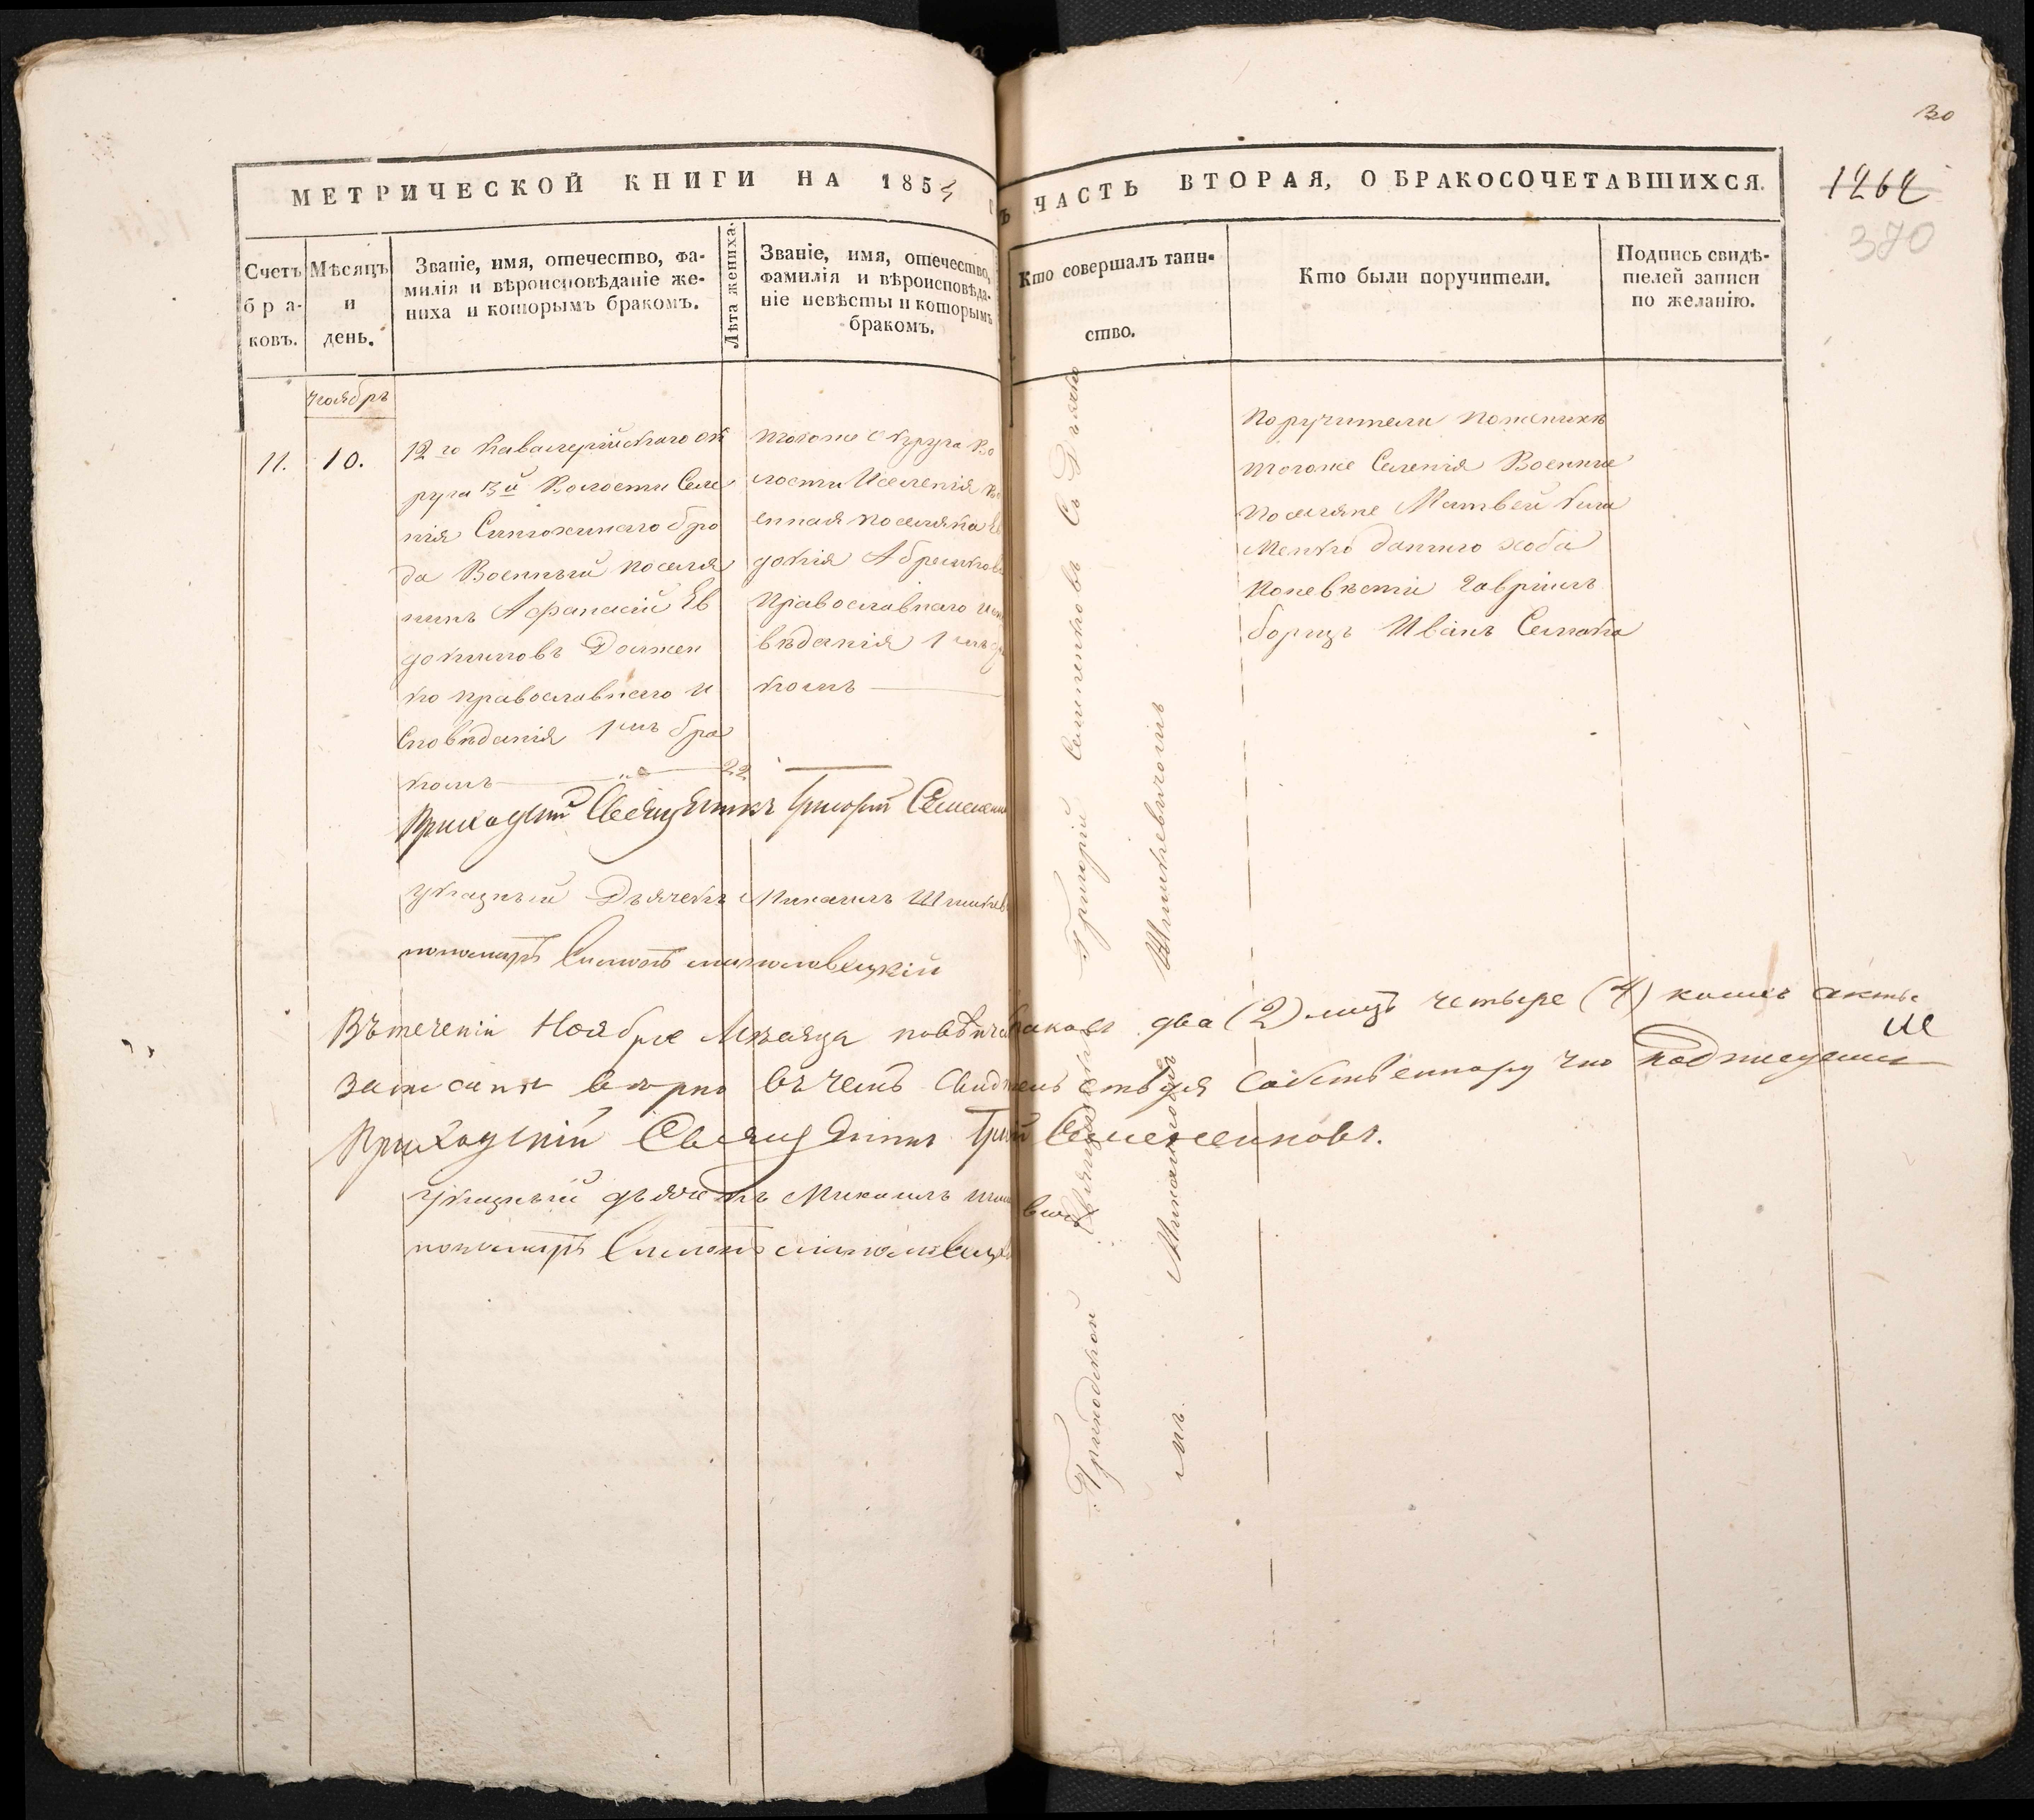 30
МЕТРИЧЕСКОЙ КНИГИ НА 1854 ГЪ ЧАСТЬ ВТОРАЯ, О БРАКОСОЧЕТАВШИХСЯ.
1262
370
Счетъ бра-ковъ.
Мѣсяцъ и день.
Званіе, имя, отечество, фа-
милія и вѣроисповѣданіе же-
ниха и которымъ бракомъ.
Лѣта жениха.
Званіе, имя, отечество,
фамилія и вѣроисповѣда-
ніе невѣсты и которымъ
бракомъ.
Кто совершалъ таин-
ство.
Кто были поручители.
Подпись свидѣ-
телей записи
по желанію.
Ноябрь
11.
10.
12го Кавалерійскаго ок
руга 3й Волости Селе
нія Синюхинаго бро
да Военный поселя
нинъ Афанасій Ев
докимовъ Должен
ко православнаго и
сповѣданія 1мъ бра
комъ
22
тогоже Округа Во
лости и селенія Во
енная поселянка Ев
докія Абрамова
Православнаго испо
вѣданія 1мъ бра
комъ
Приходской Священникъ Григорій Семененковъ Съ Дьячко
мъ Михаиломъ Шишкевичомъ
Поручители по женихѣ
тогоже Селенія Военные
поселяне Матвей
Данило
По невѣсти Гавріилъ
Иванъ
Приходскій Священникъ Григорій Семененк
Указный Дьячекъ Михаилъ Шишкев
пономарь Симеонъ
Въ теченіи Ноября Мѣсяца повѣнчано два (2) лицъ четыре (4) коихъ акты
записаны вѣрно въ чемъ свидѣтельствуя собственноручно подписуемся
Приходскій Священникъ Григорій Семененковъ.
Указный дьячекъ Михаилъ Шишкевичъ
пономарь Симеонъ